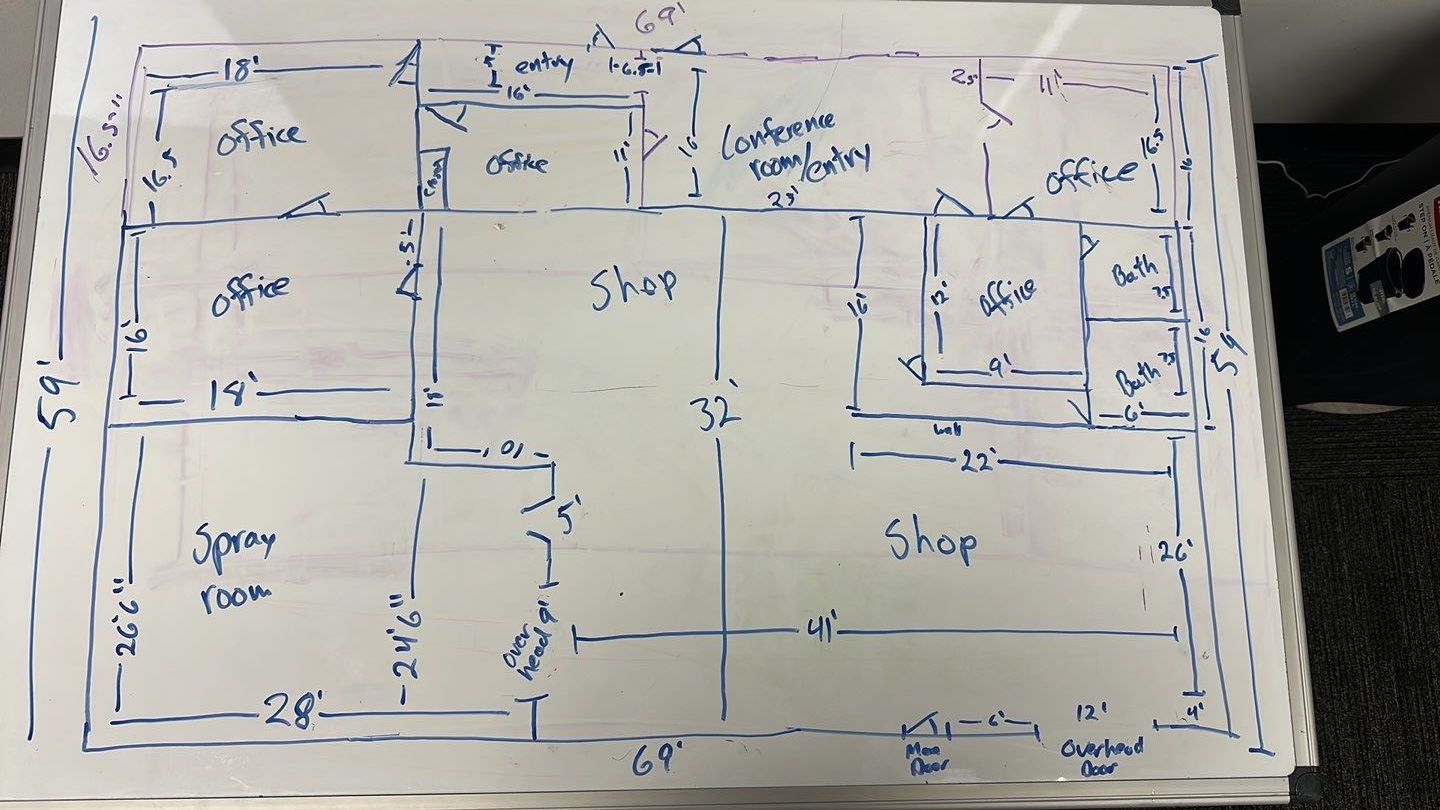 69'
18'
5'
entry
6.5
16'
2.5
11'
16.5"
16.5
Office
Office
11'
16'
Conference
room/entry
25'
Office
16.5
16
59'
Office
16'
18'
5'
15'
10'
Shop
32'
16'
12'
Office
9'
Bath
7.5
Bath
7.5
6'
16
59'
wall
22'
Spray
room
26'6"
24'6"
28'
5'
Over
head 9'
Shop
26'
41'
69'
Man
Door
6'
12'
Overhead
Door
4'
STEP ON / A PEDALE